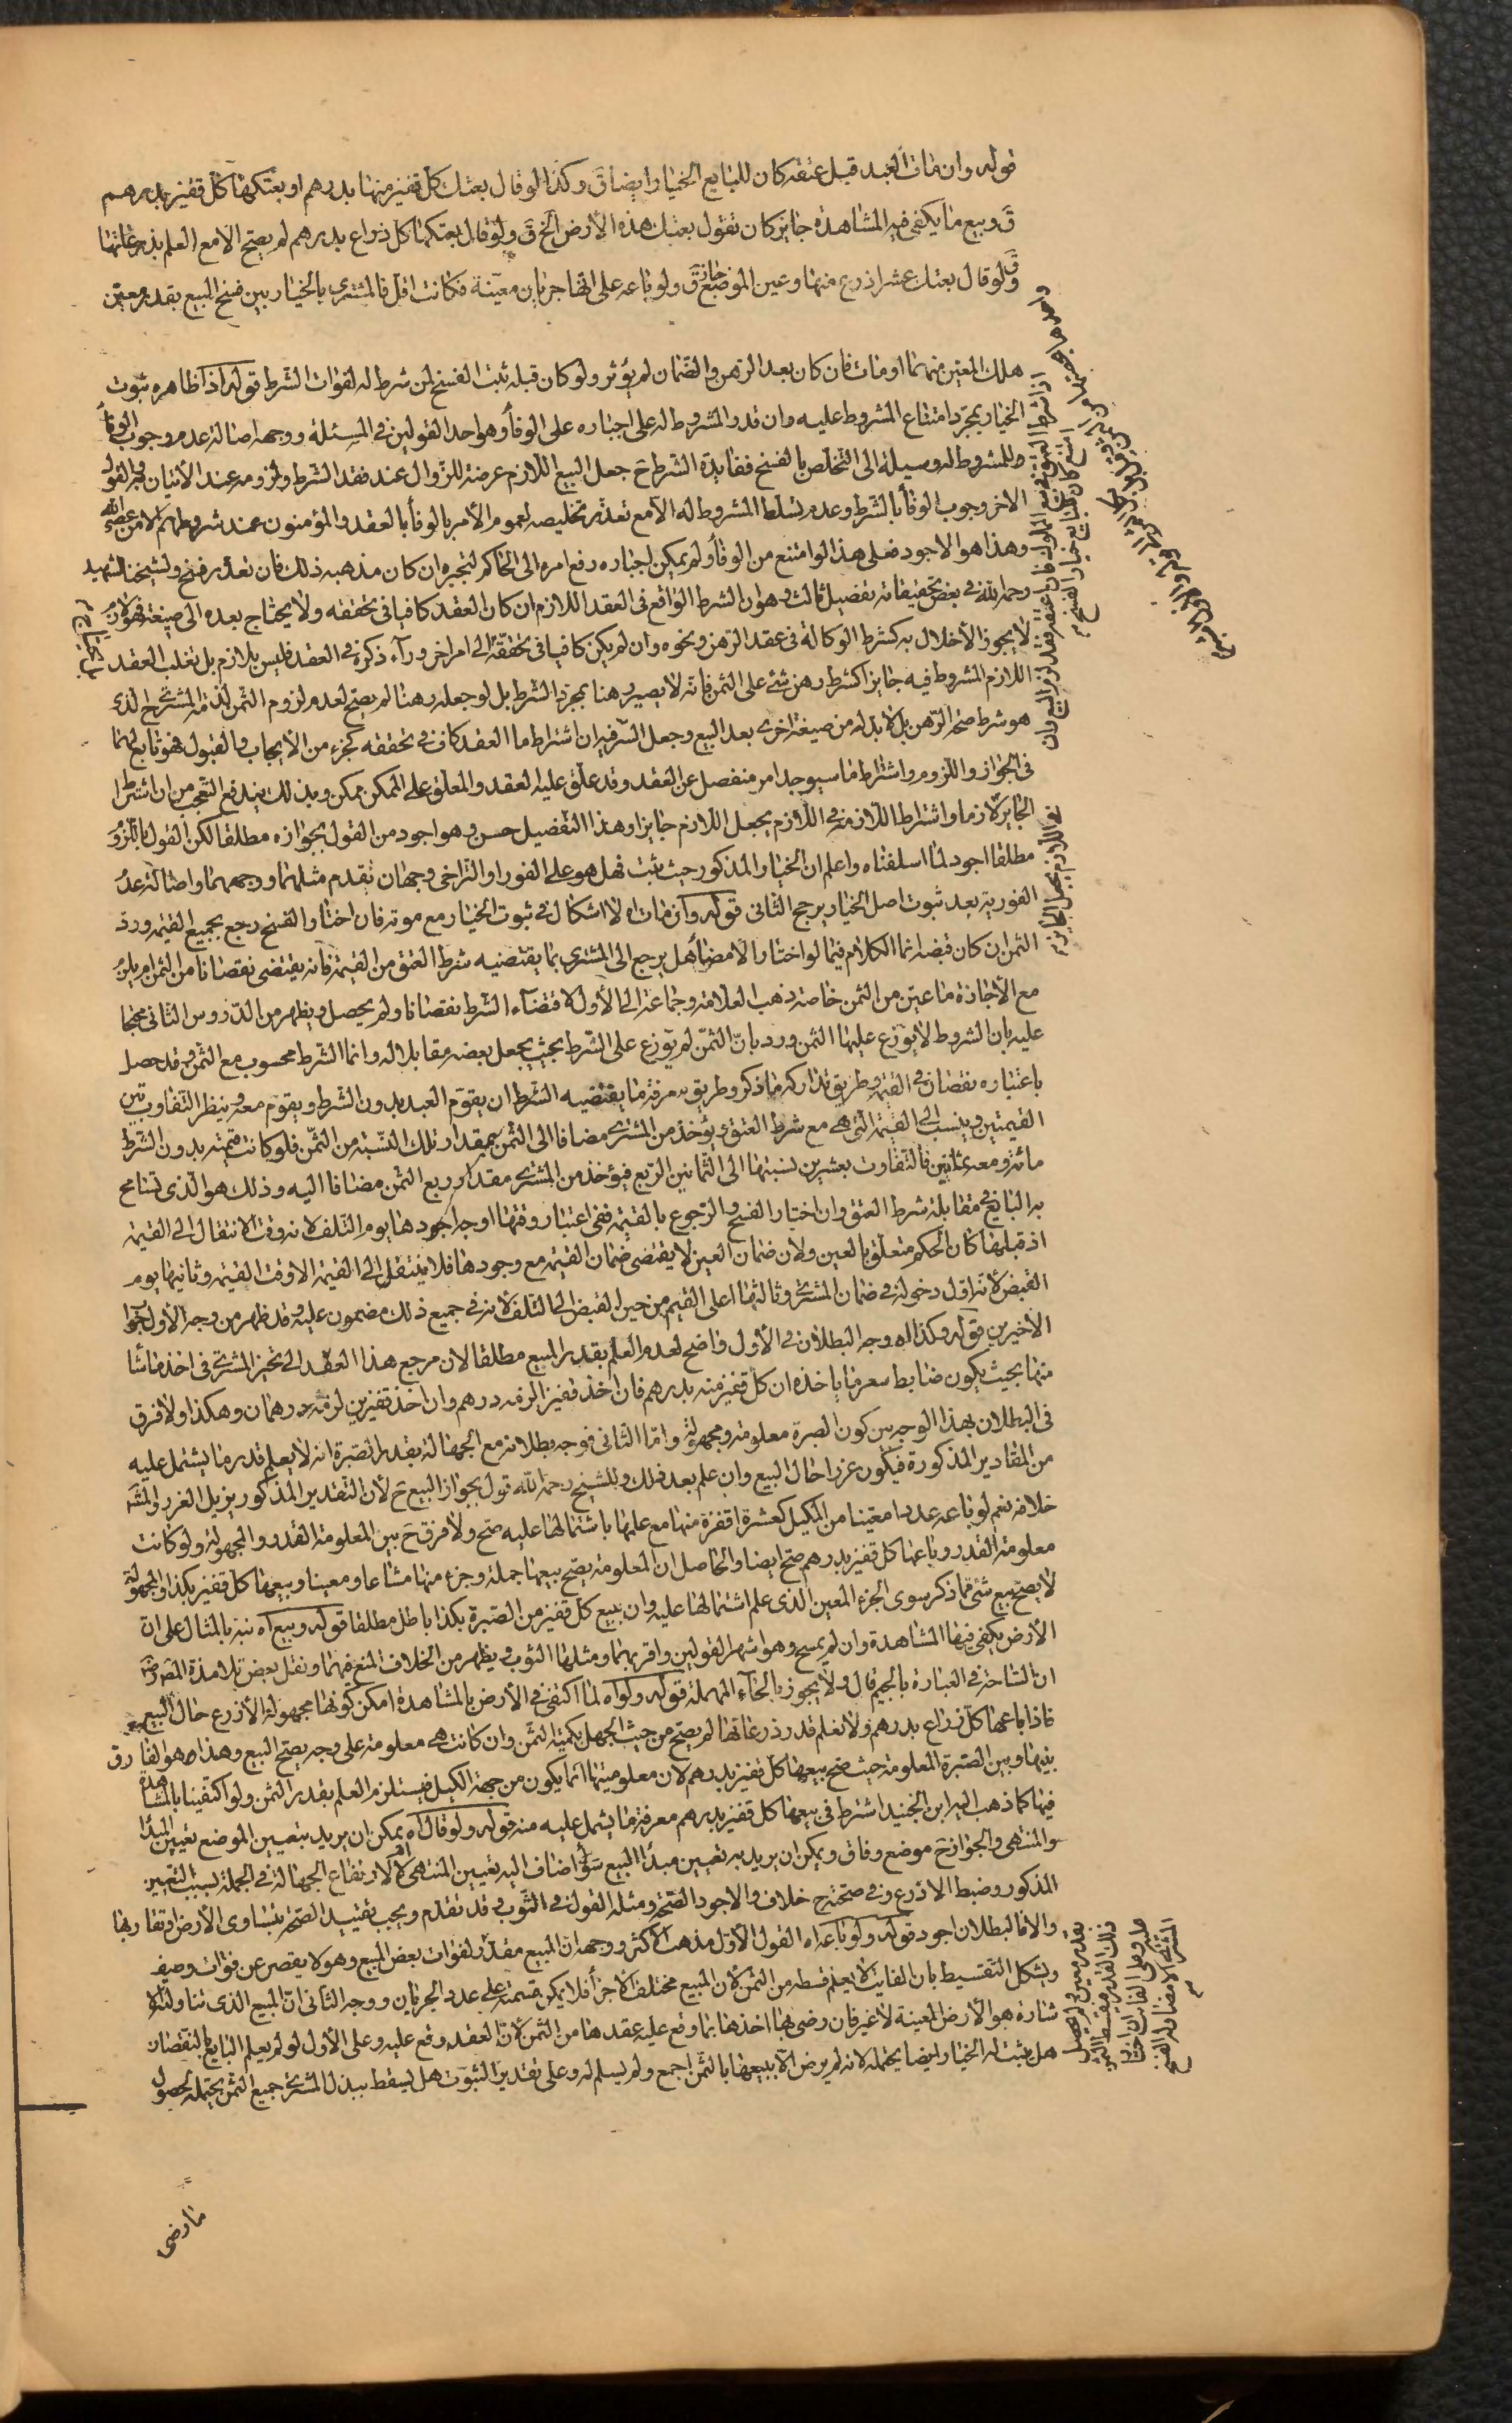 قوله وان مات العبد قبل عتقه كان للبايع الخيار ايضا قَ وكذا لو قال بعتك كل قفيز منها بدرهم او بعتكها كل قفيز بدرهم
قَ وبيع ما يكفى فيه المشاهدة جايز كان تقول بعتك هذه الأرض الخ قَ ولو قال بعتكها كل ذراع بدرهم لم يصح الا مع العلم بذرعانها
قَ ولو قال بعتك عشر اذرع منها وعين الموضع جاز قَ ولو باعه على انها جربان معينة فكانت اقل فالمشترى بالخيار بين فسخ البيع بقدر معين
هلك المعين منهما او مات فان كان بعد الرهن والضمان لم يؤثر ولو كان قبله ثبت الفسخ لمن شرط له لفوات الشرط قوله اذا ظاهره ثبوت
الخيار بمجرد امتناع المشروط عليه وان قدر المشروط له على اجباره على الوفأ وهو احد القولين في المسئلة ووجهه اصالة عدم وجوب الوفأ
للمشروط له وسيلة الى التخلص بالفسخ ففايدة الشرط حَ جعل البيع اللازم عرضة للزوال عند فقد الشرط ولزومه عند الاتيان به والقول
الاخر وجوب الوفأ بالشرط وعدم تسلط المشروط له الا مع تعذر تخليصه لعموم الأمر بالوفأ بالعقد والمؤمنون عند شروطهم الا من عصى الله
وهذا هو الاجود فعلى هذا لو امتنع من الوفأ ولم يمكن اجباره رفع امره الى الحاكم ليجبره ان كان مذهبه ذلك فان تعذر فسخ ولشيخنا الشهيد
رحمه الله في بعض تحقيقاته تفصيل ثالث وهو ان الشرط الواقع فى العقد اللازم ان كان العقد كافيا فى تحققه ولا يحتاج بعده الى صيغة فهو لازم
لا يجوز الأخلال به كشرط الوكالة فى عقد الرهن ونحوه وان لم يكن كافيا فى تحققه الى امر اخر ورآء ذكره في العقد فليس بلازم بل تغلب العقد
اللازم المشروط فيه جايزا كشرط رهن شئ على الثمن فانه لا يصير رهنا بمجرد الشرط بل لو جعله رهنا لم يصح لعدم لزوم الثمن لذمة المشترى الذى
هو شرط صحة الرهن بل لا بد له من صيغة اخرى بعد البيع وجعل السر فيه ان اشتراط ما العقد كاف في تحققه كجزء من الأيجاب والقبول فهو تابع لهما
فى الجواز واللزوم واشتراط ما سيوجد امر منفصل عن العقد وقد علق عليه العقد والمعلق على الممكن ممكن وبذلك يندفع التعجب من ان اشتراط
الجايز لازما واشتراط اللازم في اللازم يجعل اللازم جايزا وهذا التفصيل حسن وهو اجود من القول بجوازه مطلقا لكن القول باللزوم
مطلقا اجود لما اسلفناه واعلم ان الخيار المذكور حيث ثبت فهل هو على الفور او التراخى وجهان تقدم مثلهما ووجههما واصالة عدم
الفورية بعد ثبوت اصل الخيار يرجح الثانى قوله وان مات اه لا اشكال في ثبوت الخيار مع موته فان اختار الفسخ رجع بجميع القيمة ورد
الثمن ان كان قبضه انما الكلام فيما لو اختار الامضأ هل يرجع الى المشترى بما يقتضيه شرط العتق من القيمة فانه يقتضى نقصانا من الثمن ام يلزم
مع الأجازة ما عين من الثمن خاصة ذهب العلامة وجماعة الى الأول لاقتضآء الشرط نقصانا ولم يحصل ويظهر من الدروس الثانى محتجا
عليه بان الشروط لا يوزع عليها الثمن ورد بان الثمن لم يوزع على الشرط بحيث يجعل بعضه مقابلا له وانما الشرط محسوب مع الثمن وقد حصل
باعتباره نقصان في القيمة وطريق تداركه ما ذكر وطريق معرفة ما يقتضيه الشرط ان يقوم العبد بدون الشرط ويقوم معه وينظر التفاوت بين
القيمتين وينسب الى القيمة التى هى مع شرط العتق ويؤخذ من المشترى مضافا الى الثمن بمقدار تلك النسبة من الثمن فلو كانت قيمته بدون الشرط
مائة ومعه بثمانين فالتفاوت بعشرين نسبتها الى الثمانين الربع فيؤخذ من المشترى مقدار ربع الثمن مضافا اليه وذلك هو الذى تسامح
به البايع في مقابلة شرط العتق وان اختار الفسخ والرجوع بالقيمة ففى اعتبار وقتها اوجه اجودها يوم التلف لانه وقت الانتقال الى القيمة
اذ قبلها كان الحكم متعلق بالعين ولان ضمان العين لا يقتضى ضمان القيمة مع وجودها فلا ينتقل الى القيمة الا وقت القيمة وثانيها يوم
القبض لأنه اول دخوله في ضمان المشترى وثالثها اعلى القيم من حين القبض الى التلف لانه في جميع ذلك مضمون عليه وقد ظهر من وجه الأول جواب
الأخيرين قوله وكذا اه وجه البطلان في الأول واضح لعدم العلم بقدر المبيع مطلقا لان مرجع هذا العقد الى تخير المشترى فى اخذ ما شا
منها بحيث يكون ضابط سعر ما باخذه ان كل قفيز منه بدرهم فان اخذ قفيزا لزمه درهم وان اخذ قفيزين لزمه درهمان وهكذا ولا فرق
فى البطلان بهذا الوجه بين كون الصبرة معلومة ومجهولة واما الثانى فوجه بطلانه مع الجهالة بقدر الصبرة انه لا يعلم قدر ما يشتمل عليه
من المقادير المذكورة فيكون غررا حال البيع وان علم بعد ذلك وللشيخ رحمه الله قول بجواز البيع حَ لأن التقدير المذكور يزيل الغرر والمشهور
خلافه نعم لو باعه عددا معينا من المكيل كعشرة اقفزة منها مع علمها باشتمالها عليه صح ولا فرق حَ بين المعلومة القدر والمجهولة ولو كانت
معلومة القدر وباعها كل قفيز بدرهم صح ايضا والحاصل ان المعلومة يصح بيعها جملة وجزء منها مشاعا ومعينا وبيعها كل قفيز بكذا والمجهولة
لا يصح بيع شئ مما ذكر سوى الجزء المعين الذى علم اشتمالها عليه وان بيع كل قفيز من الصبرة بكذا باطل مطلقا قوله وبيع اه نبه بالمثال على ان
الأرض يكفى فيها المشاهدة وان لم يمسح وهو اشهر القولين واقربهما ومثلها الثوب ويظهر من الخلاف المنع فيهما ونقل بعض تلامذة المصنف
ان الشاحة في العبارة بالجيم قال ولا يجوز بالحآء المهملة قوله ولو اه لما اكتفى في الأرض بالمشاهدة امكن كونها مجهولة الأذرع حال البيع
فاذا باعها كل ذراع بدرهم ولا نعلم قدر ذرعانها لم يصح من حيث الجهل بكمية الثمن وان كانت هى معلومة على وجه يصح البيع وهذا هو الفارق
بينها وبين الصبرة المعلومة حيث صح بيعها كل قفيز بدرهم لان معلوميتها انما يكون من جهة الكيل فيستلزم العلم بقدر الثمن ولو اكتفينا بالمشاهدة
فيها كما ذهب اليه ابن الجنيد اشترط فى بيعها كل قفيز بدرهم معرفة ما يشمل عليه منه قوله ولو قال اه يمكن ان يريد بتعيين الموضع تعيين المبدأ
والمنتهى والجواز حَ موضع وفاق ويمكن ان يريد به تعيين مبدأ المبيع سوأ اضاف اليه تعيين المنتهى ام لا لارتفاع الجهالة في الجملة بسبب التعيين
المذكور وضبط الاذرع وفى صحته حَ خلاف والاجود الصحة ومثله القول في الثوب وقد تقدم ويجب تقييد الصحة بتساوى الأرض او تقاربها
والا فالبطلان اجود قوله ولو باعه اه القول الأول مذهب الأكثر ووجهه ان المبيع مقدر لفوات بعض المبيع وهو لا يقصر عن فوات وصف
ويشكل التقسيط بان الفايت لا يعلم قسطه من الثمن لأن المبيع مختلف الأجزأ فلا يمكن قسمته على عدد الجربان ووجه الثانى ان المبيع الذى تناولته الا
شارة هو الأرض المعينة لا غير فان رضى بها اخذها بما وقع عليه عقدها من الثمن لأن العقد وقع عليه وعلى الأول لو لم يعلم البايع بالنقصان
هل يثبت له الخيار ايضا يحتمله لانه لم يرض الا ببيعها بالثمن اجمع ولم يسلم له وعلى تقدير الثبوت هل يسقط ببذل المشترى جميع الثمن يحتمله لحصول
ما رضى